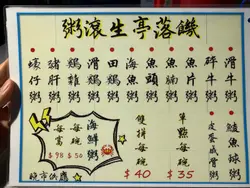 饑落亭生滾粥
滑牛粥
碎牛粥
魚片粥
魚腩粥
魚頭粥
田雞粥
滑雞粥
雞雜粥
豬粥
蠔仔粥
魚粥
皮蛋咸骨粥
單點每碗
$35
雙拼每碗
$40
海鮮粥
每碗
$50
每窩
$98
晚市供應